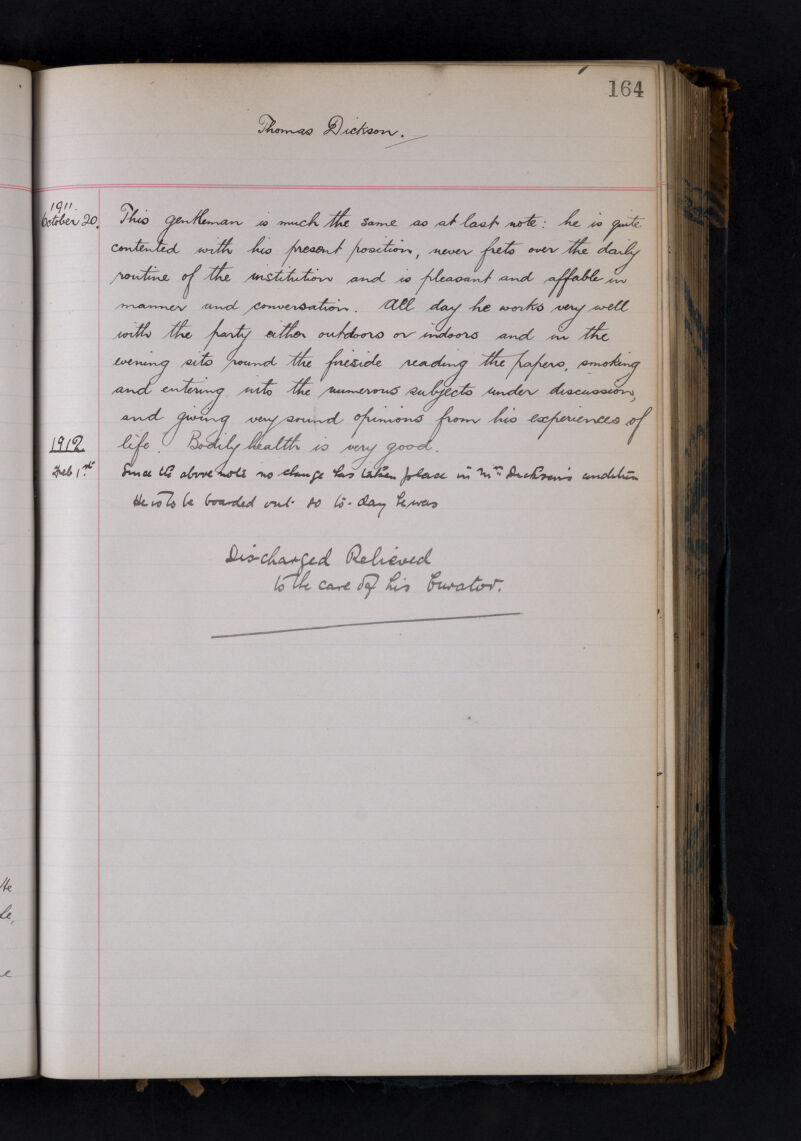 164
Thomas Dickson.
1911.
October 20.
This gentleman is much the same as at last note: he is quite
contented with his present position, never frets over the daily
routine of the institution and is pleasant and affable in
manner and conversation. All day he works very well
with the party either outdoors or indoors and in the
evening sits round the fireside reading the papers, smoking
and entering into the numerous subjects under discussion,
and giving very sound opinions from his experiences of
life. Bodily health is very good.
1912
Feb 1st
Since the above note no change has taken place in Mr Dickson's condition
He is to be boarded out so to-day he was
Discharged Relieved
to the care of his Curator.
He